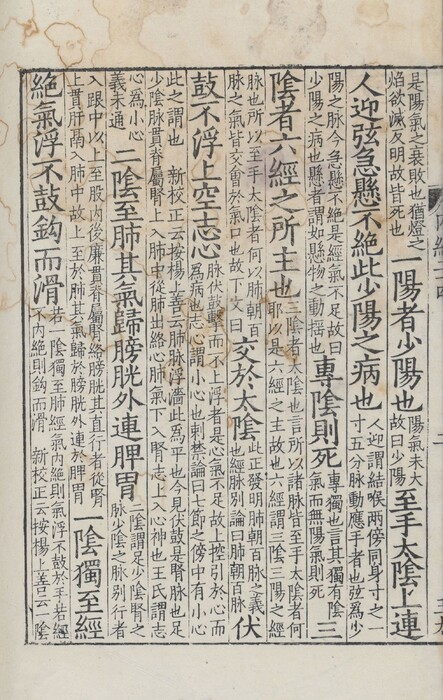 是陽氣之衰敗也猶燈之
焰欲滅反明故皆死也
一陽者少陽也
陽氣未大
故曰少陽
至手太陰上連
人迎弦急懸不絕此少陽之病也
人迎謂結喉兩傍同身寸之一
寸五分脉動應手者也弦為少
陽之脉今急懸不絕是經氣不足故曰
少陽之病也懸者謂如懸物之動搖也
專陰則死
專獨也言其獨有陰
氣而無陽氣則死
三
陰者六經之所主也
三陰者太陰也言所以諸脉皆至手太陰者何
耶以是六經之主故也六經謂三陰三陽之經
脉也所以至手太陰者何以肺朝百
脉之氣皆交會於氣口也故下文曰
交於太陰
此正發明肺朝百脉之義
也經脉別論曰肺朝百脉
伏
鼓不浮上空志心
脉伏鼓擊而不上浮者是心氣不足故上控引於心而
為病也志心謂小心也刺禁論曰七節之傍中有小心
此之謂也 新校正云按楊上善云肺脉浮濇此為平也今見伏鼓是腎脉也足
少陰脉貫脊屬腎上入肺中從肺出絡心肺氣下入腎志上入心神也王氏謂志
心為小心
義未通
二陰至肺其氣歸膀胱外連脾胃
二陰謂足少陰腎之
脉少陰之脉別行者
入跟中以上至股內後廉貫脊屬腎絡膀胱其直行者從腎
上貫肝鬲入肺中故上至於肺其氣歸於膀胱外連於脾胃
一陰獨至經
絕氣浮不鼓鉤而滑
若一陰獨至肺經氣內絕則氣浮不鼓於手若經
不內絕則鉤而滑 新校正云按楊上善云一陰